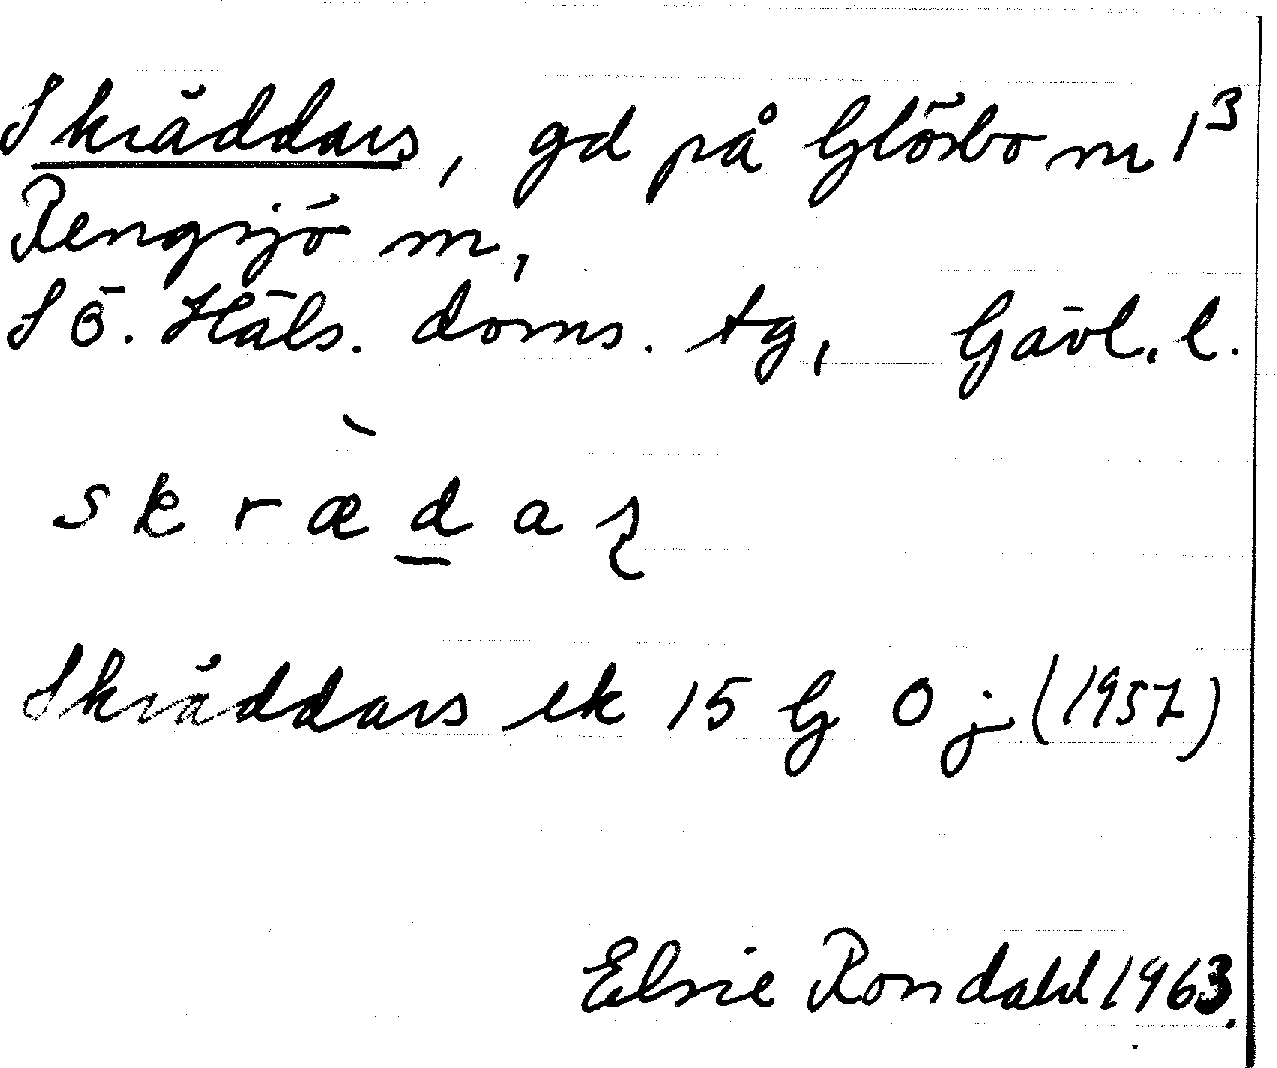 Skräddars, gd på Glösbo m 1³
Rengsjö m,
SÖ. Häls. doms. tg, Gävl. l.
skræ̀d̲aʂ
Skräddars ek 15 G O j (1957)
Elsie Rondahl 1963.